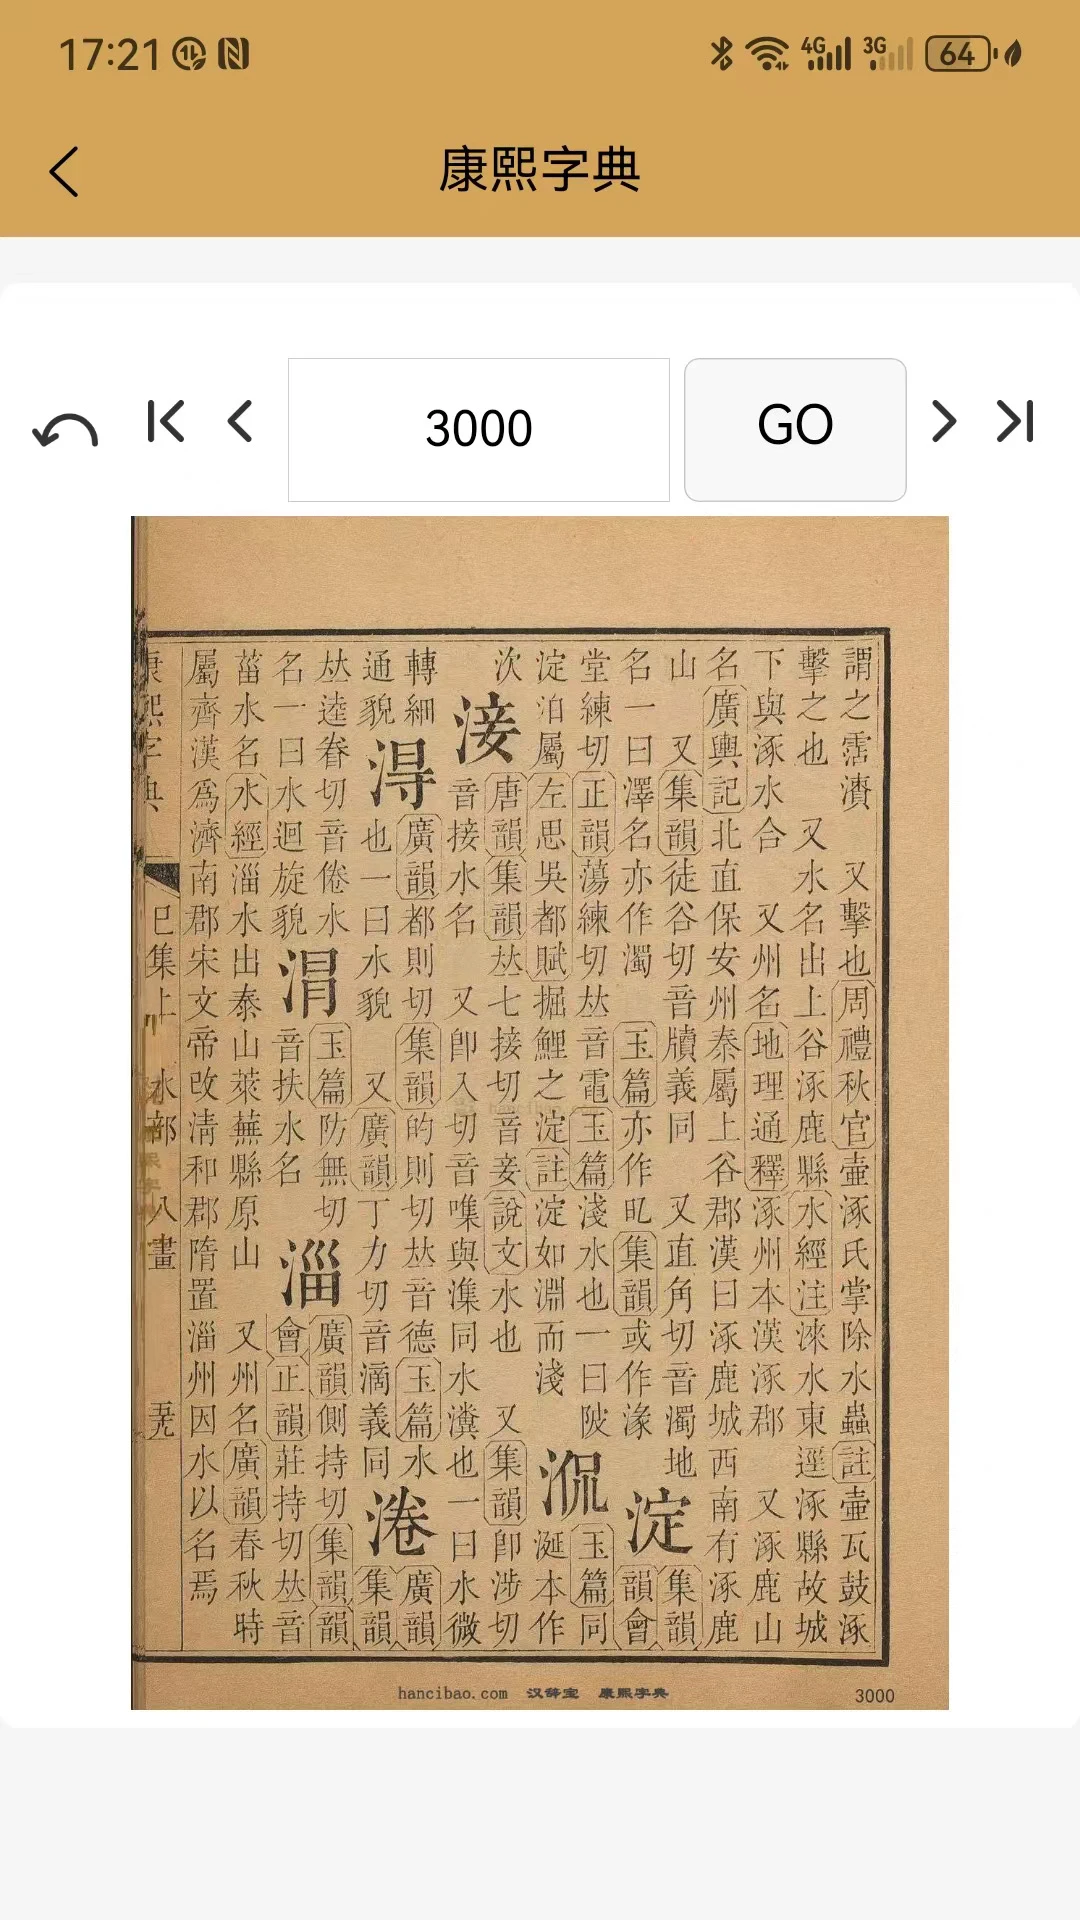 17:21 4G 3G 64
康熙字典
3000 GO
謂之霑漬 又擊也周禮秋官壺涿氏掌除水蟲註壺瓦鼓涿
擊之也 又水名出上谷涿鹿縣水經注淶水東逕涿縣故城
下與涿水合 又州名地理通釋涿州本漢涿郡 又涿鹿山
名廣輿記北直保安州秦屬上谷郡漢曰涿鹿城西南有涿鹿
山 又集韻徒谷切音牘義同 又直角切音濁地
名一曰澤名亦作濁 玉篇亦作集韻或作湪
淀 集韻韻會
堂練切正韻蕩練切𠀤音電玉篇淺水也一曰陂
淀泊屬左思吳都賦掘鯉之淀註淀如淵而淺
玉篇同涎本作
㳄
淁 唐韻集韻𠀤七接切音妾說文水也 又集韻卽涉切
音接水名 又卽入切音㗱與潗同水瀵也一曰水微
轉細
通貌
淂 廣韻都則切集韻的則切𠀤音德玉篇水
也一曰水貌 又廣韻丁力切音滴義同
淃 廣韻集韻
𠀤逵眷切音倦水
名一曰水迴旋貌
玉篇防無切
音扶水名
淄 廣韻側持切集韻韻
會正韻莊持切𠀤音
菑水名水經淄水出泰山萊蕪縣原山 又州名廣韻春秋時
屬齊漢爲濟南郡宋文帝改淸和郡隋置淄州因水以名焉
康熙字典 巳集上 水部 八畫 五九
hancibao.com 汉辞宝 康熙字典 3000